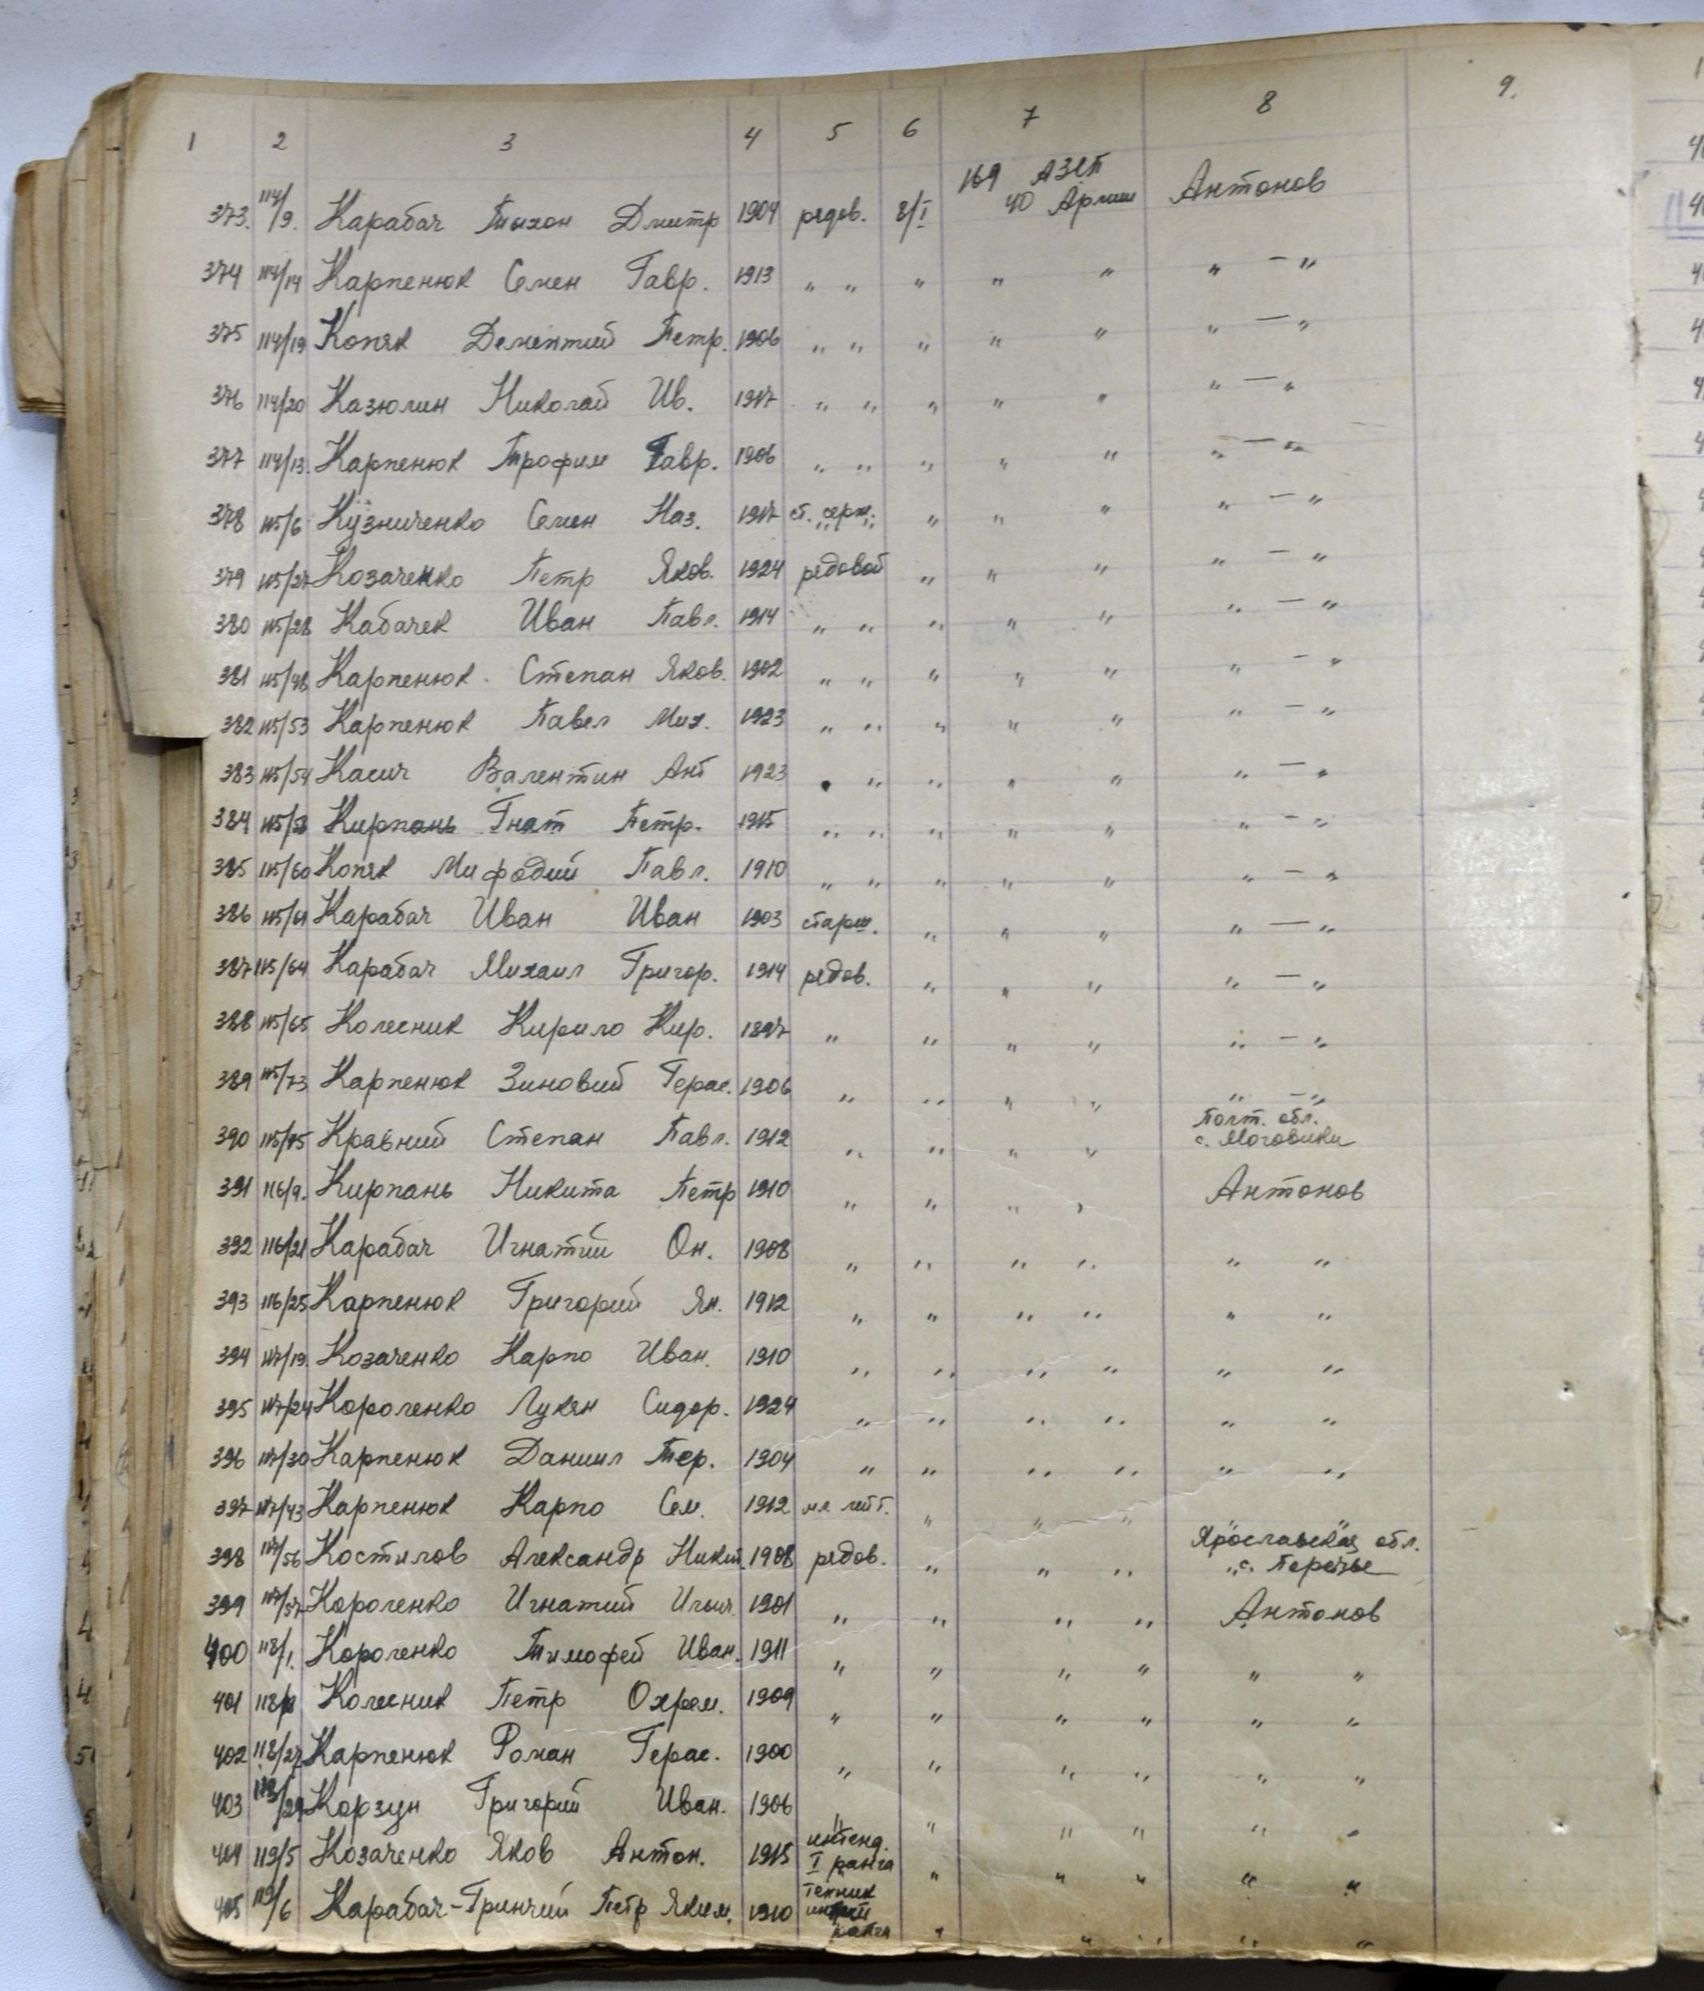 1 2 3 4 5 6 7 8 9.
373. 114/9. Карабач Тихон Дмитр 1904 рядов. г/I 169 АЗСП 40 Армии Антонов
374 114/14 Карпенюк Семен Гавр. 1913 " " " " " " — "
375 114/19 Копяк Дементий Петр. 1906 " " " " " " — "
376 114/20 Казюлин Николай Ив. 1917 " " " " " " — "
377 114/13. Карпенюк Трофим Гавр. 1906 " " " " " " — "
378 115/6 Кузниченко Семен Наз. 1917 ст. серж. " " " " — "
379 115/27 Козаченко Петр Яков. 1924 рядовой " " " " — "
380 115/28 Кабачек Иван Павл. 1914 " " " " " " — "
381 115/48 Карпенюк Степан Яков. 1902 " " " " " " — "
382 115/53 Карпенюк Павел Мих. 1923 " " " " " " — "
383 115/54 Касич Валентин Ант 1923 " " " " " " — "
384 115/58 Кирпань Гнат Петр. 1915 " " " " " " — "
385 115/60 Копяк Мифодий Павл. 1910 " " " " " " — "
386 115/61 Карабач Иван Иван 1903 старш. " " " " — "
387 115/64 Карабач Михаил Григор. 1914 рядов. " " " " — "
388 115/65 Колесник Кирило Кир. 1897 " " " " " — "
389 115/73 Карпенюк Зиновий Герас. 1906 " " " " " — "
390 115/75 Кравний Степан Павл. 1912 " " " " Полт. обл.
с. Моговики
391 116/9. Кирпань Никита Петр 1910 " " " " Антонов
392 116/21 Карабач Игнатий Он. 1908 " " " " " "
393 116/25 Карпенюк Григорий Ян. 1912 " " " " " "
394 117/19. Козаченко Карпо Иван. 1910 " " " " " "
395 117/24 Короленко Лукян Сидор. 1924 " " " " " "
396 117/30 Карпенюк Даниил Тер. 1904 " " " " " "
397 117/43 Карпенюк Карпо Сем. 1912 мл. лейт. " " " " "
398 117/56 Костилов Александр Никит. 1908 рядов. " " " Ярославская обл.
с. Перечье
399 117/57 Короленко Игнатий 1901 " " " " Антонов
400 118/1. Короленко Тимофей Иван. 1911 " " " " " "
401 118/9 Колесник Петр Охрем. 1909 " " " " " "
402 118/27 Карпенюк Роман Герас. 1900 " " " " " "
403 118/29 Корзун Григорий Иван. 1906 " " " " " "
404 119/5 Козаченко Яков Антон. 1915 интенд. I ранга " " " " "
405 119/6 Карабач-Гринчий Петр Яким. 1910 техник ранга " " " " "